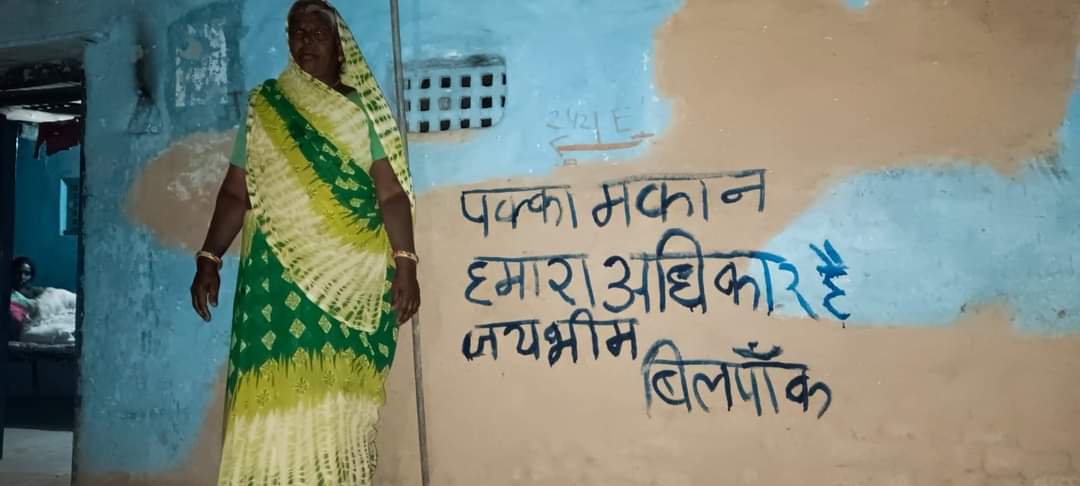 पक्का मकान
हमारा अधिकार है
जयभीम
बिलपाँक